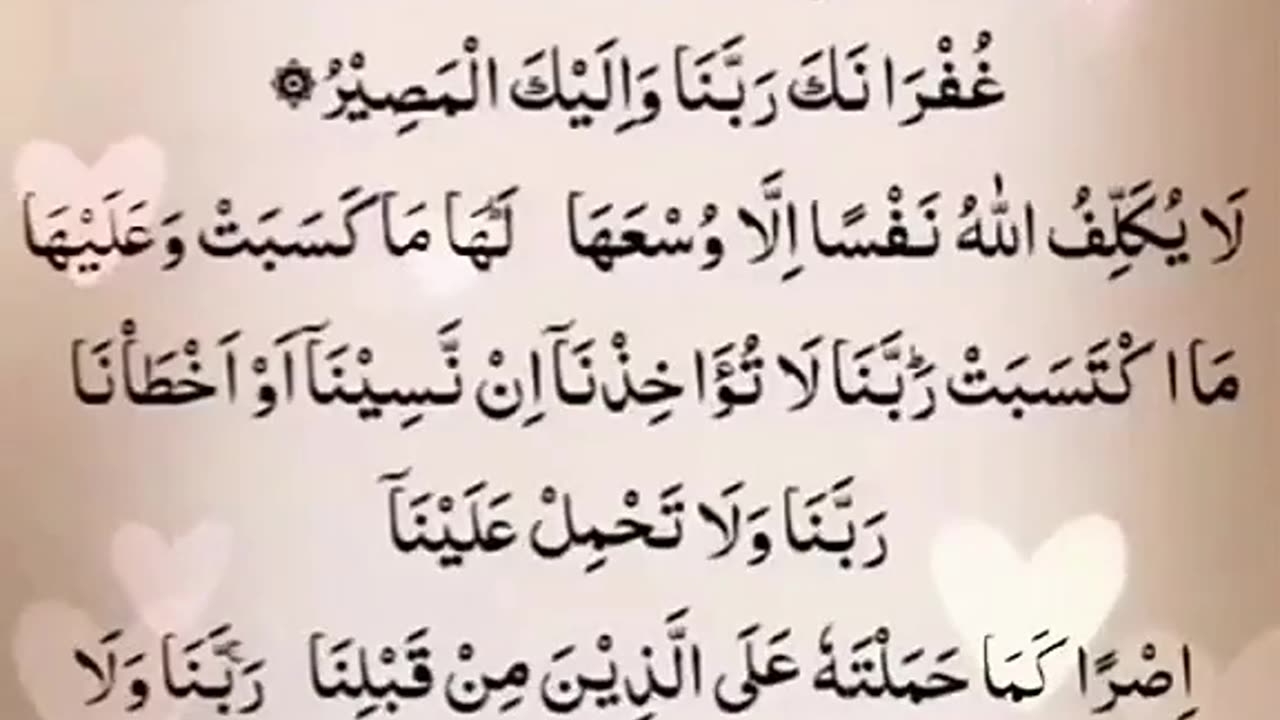 غُفْرَانَكَ رَبَّنَا وَاِلَيْكَ الْمَصِيْرُ۞
لَا يُكَلِّفُ اللّٰهُ نَفْسًا اِلَّا وُسْعَهَا لَهَا مَا كَسَبَتْ وَعَلَيْهَا
مَا اكْتَسَبَتْ رَبَّنَا لَا تُؤَاخِذْنَآ اِنْ نَّسِيْنَآ اَوْ اَخْطَاْنَا
رَبَّنَا وَلَا تَحْمِلْ عَلَيْنَآ
اِصْرًا كَمَا حَمَلْتَهٗ عَلَى الَّذِيْنَ مِنْ قَبْلِنَا رَبَّنَا وَلَا